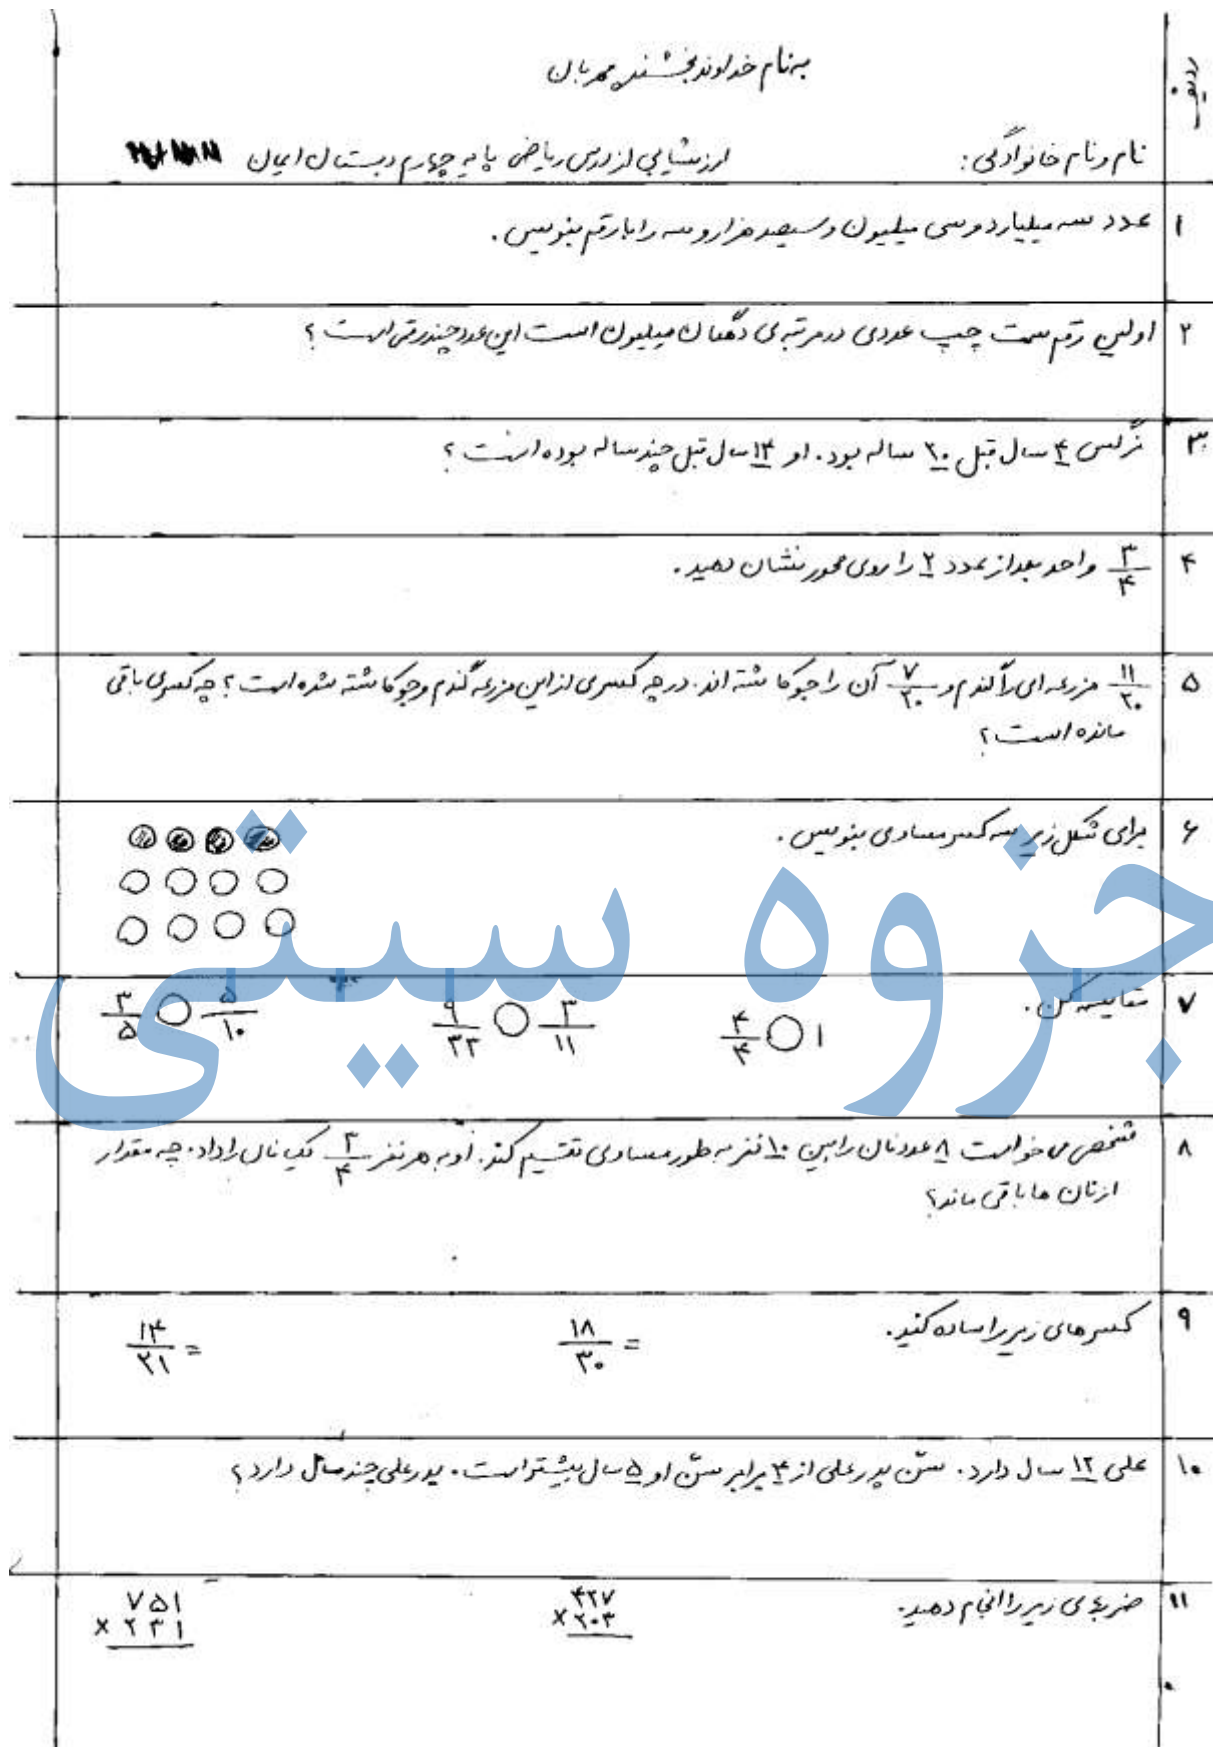 ردیف
به نام خداوند بخشنده مهربان
نام و نام خانوادگی:
ارزشیابی از درس ریاضی پایه چهارم دبستان ایمان
۱ عدد سه میلیارد و سی میلیون و سیصد هزار و سه را با رقم بنویس.
۲ اولین رقم سمت چپ عددی در مرتبه ی دهگان میلیون است این عدد چند رقمی است؟
۳ نرگس ۴ سال قبل ۲۰ ساله بود. او ۱۴ سال قبل چند ساله بوده است؟
۴ ۳/۴ واحد بعد از عدد ۲ را روی محور نشان دهید.
۵ ۱۱/۲۰ مزرعه ای را گندم و ۷/۲۰ آن را جو کاشته اند. در چه کسری از این مزرعه گندم و جو کاشته شده است؟ چه کسری باقی
مانده است؟
۶ برای شکل زیر سه کسر مساوی بنویس.
۷ مقایسه کن.
۴/۴ ○ ۱
۹/۳۲ ○ ۳/۱۱
۳/۵ ○ ۵/۱۰
۸ شخصی می خواست ۸ عدد نان را بین ۱۰ نفر به طور مساوی تقسیم کند. او به هر نفر ۳/۴ یک نان را داد. چه مقدار
از نان ها باقی ماند؟
۹ کسر های زیر را ساده کنید.
۱۸/۳۰ =
۱۴/۲۱ =
۱۰ علی ۱۲ سال دارد. سن پدر علی از ۴ برابر سن او ۵ سال بیشتر است. پدر علی چند سال دارد؟
۱۱ ضربهای زیر را انجام دهید.
۴۲۷
×۲۰۳
۷۵۱
×۲۳۱
جزوه سیتی